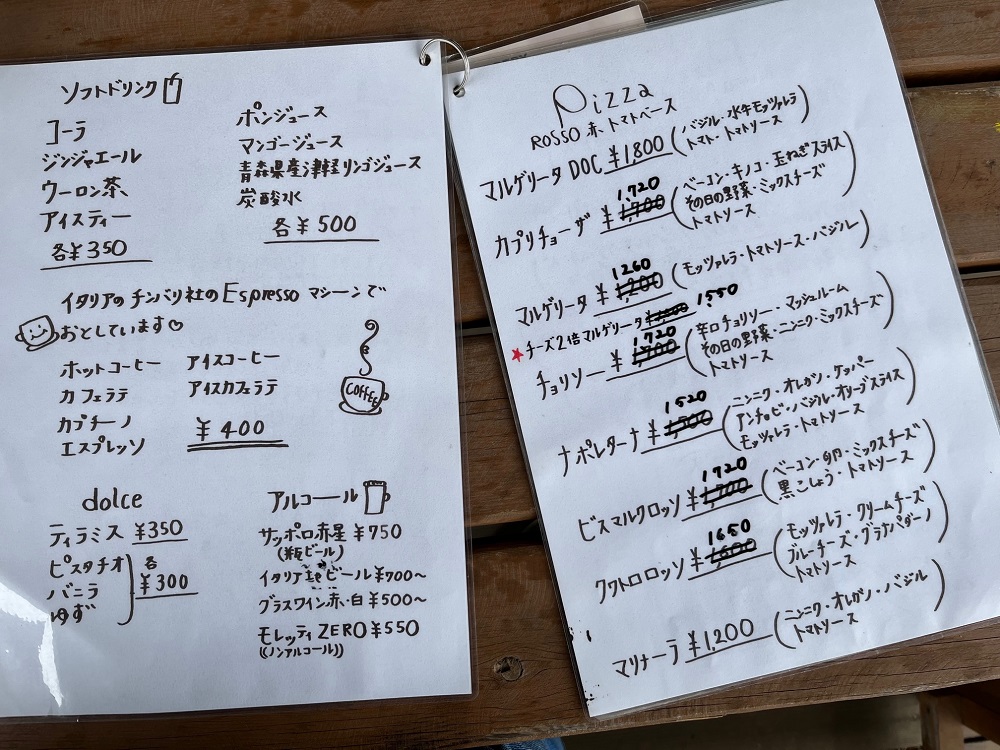 ソフトドリンク
コーラ
ジンジャエール
ウーロン茶
アイスティー
各¥350
ポンジュース
マンゴージュース
青森県産津軽リンゴジュース
炭酸水
各¥500
イタリアのチンバリ社のEspressoマシーンで
おとしています♡
ホットコーヒー
カフェラテ
カプチーノ
エスプレッソ
アイスコーヒー
アイスカフェラテ
¥400
COFFEE
dolce
ティラミス ¥350
ピスタチオ
バニラ
ゆず
各
¥300
アルコール
サッポロ赤星 ¥750
(瓶ビール)
イタリア ビール ¥700〜
グラスワイン赤・白 ¥500〜
モレッティ ZERO ¥550
((ノンアルコール))
Pizza
ROSSO 赤 トマトベース
マルゲリータ DOC ¥1,800 (バジル・水牛モッツァレラ
トマト・トマトソース)
1,720
カプリチョーザ ¥1,700 (ベーコン・キノコ・玉ねぎスライス
その日の野菜・ミックスチーズ
トマトソース)
1260
マルゲリータ ¥1,200 (モッツァレラ・トマトソース・バジル)
★チーズ2倍マルゲリータ 1,550
1720
チョリソー ¥1,700 (辛口チョリソー・マッシュルーム
その日の野菜・ニンニク・ミックスチーズ
トマトソース)
1520
ナポレターナ ¥1,500 (ニンニク・オレガノ・ケッパー
アンチョビ・バジル・オリーブスライス
モッツァレラ・トマトソース)
1,720
ビスマルクロッソ ¥1,700 (ベーコン・卵・ミックスチーズ
黒こしょう・トマトソース)
1650
クワトロロッソ ¥1,600 (モッツァレラ・クリームチーズ
ブルーチーズ・グラナパダーノ
トマトソース)
マリナーラ ¥1,200 (ニンニク・オレガノ・バジル
トマトソース)